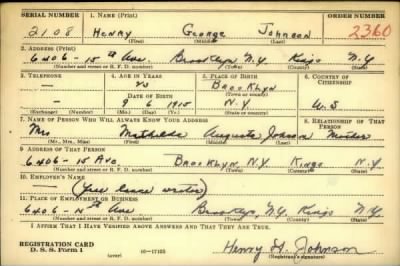 SERIAL NUMBER 1. NAME (Print) ORDER NUMBER
2108 HENRY George Johnson 2360
(First) (Middle) (Last)
2. ADDRESS (Print)
6406 - 15th Ave. Brooklyn N.Y. Kings N.Y.
(Number and street or R. F. D. number) (Town) (County) (State)
3. TELEPHONE 4. AGE IN YEARS 5. PLACE OF BIRTH 6. COUNTRY OF CITIZENSHIP
— 25 BROOKLYN
DATE OF BIRTH (Town or county)
— 9 6 1915 N.Y. U.S
(Exchange) (Number) (Mo.) (Day) (Yr.) (State or country)
7. NAME OF PERSON WHO WILL ALWAYS KNOW YOUR ADDRESS 8. RELATIONSHIP OF THAT PERSON
Mrs Mathilda Augusta Johnson Mother
(Mr., Mrs., Miss) (First) (Middle) (Last)
9. ADDRESS OF THAT PERSON
6406 - 15 Ave BROOKLYN. N.Y. Kings N.Y
(Number and street or R. F. D. number) (Town) (County) (State)
10. EMPLOYER'S NAME
— (Free lance writer)
11. PLACE OF EMPLOYMENT OR BUSINESS
6406 - 15th Ave Brooklyn, N.Y. Kings N.Y.
(Number and street or R. F. D. number) (Town) (County) (State)
I AFFIRM THAT I HAVE VERIFIED ABOVE ANSWERS AND THAT THEY ARE TRUE.
REGISTRATION CARD
D. S. S. Form 1 (over) 16—17105 Henry G. Johnson
(Registrant's signature)